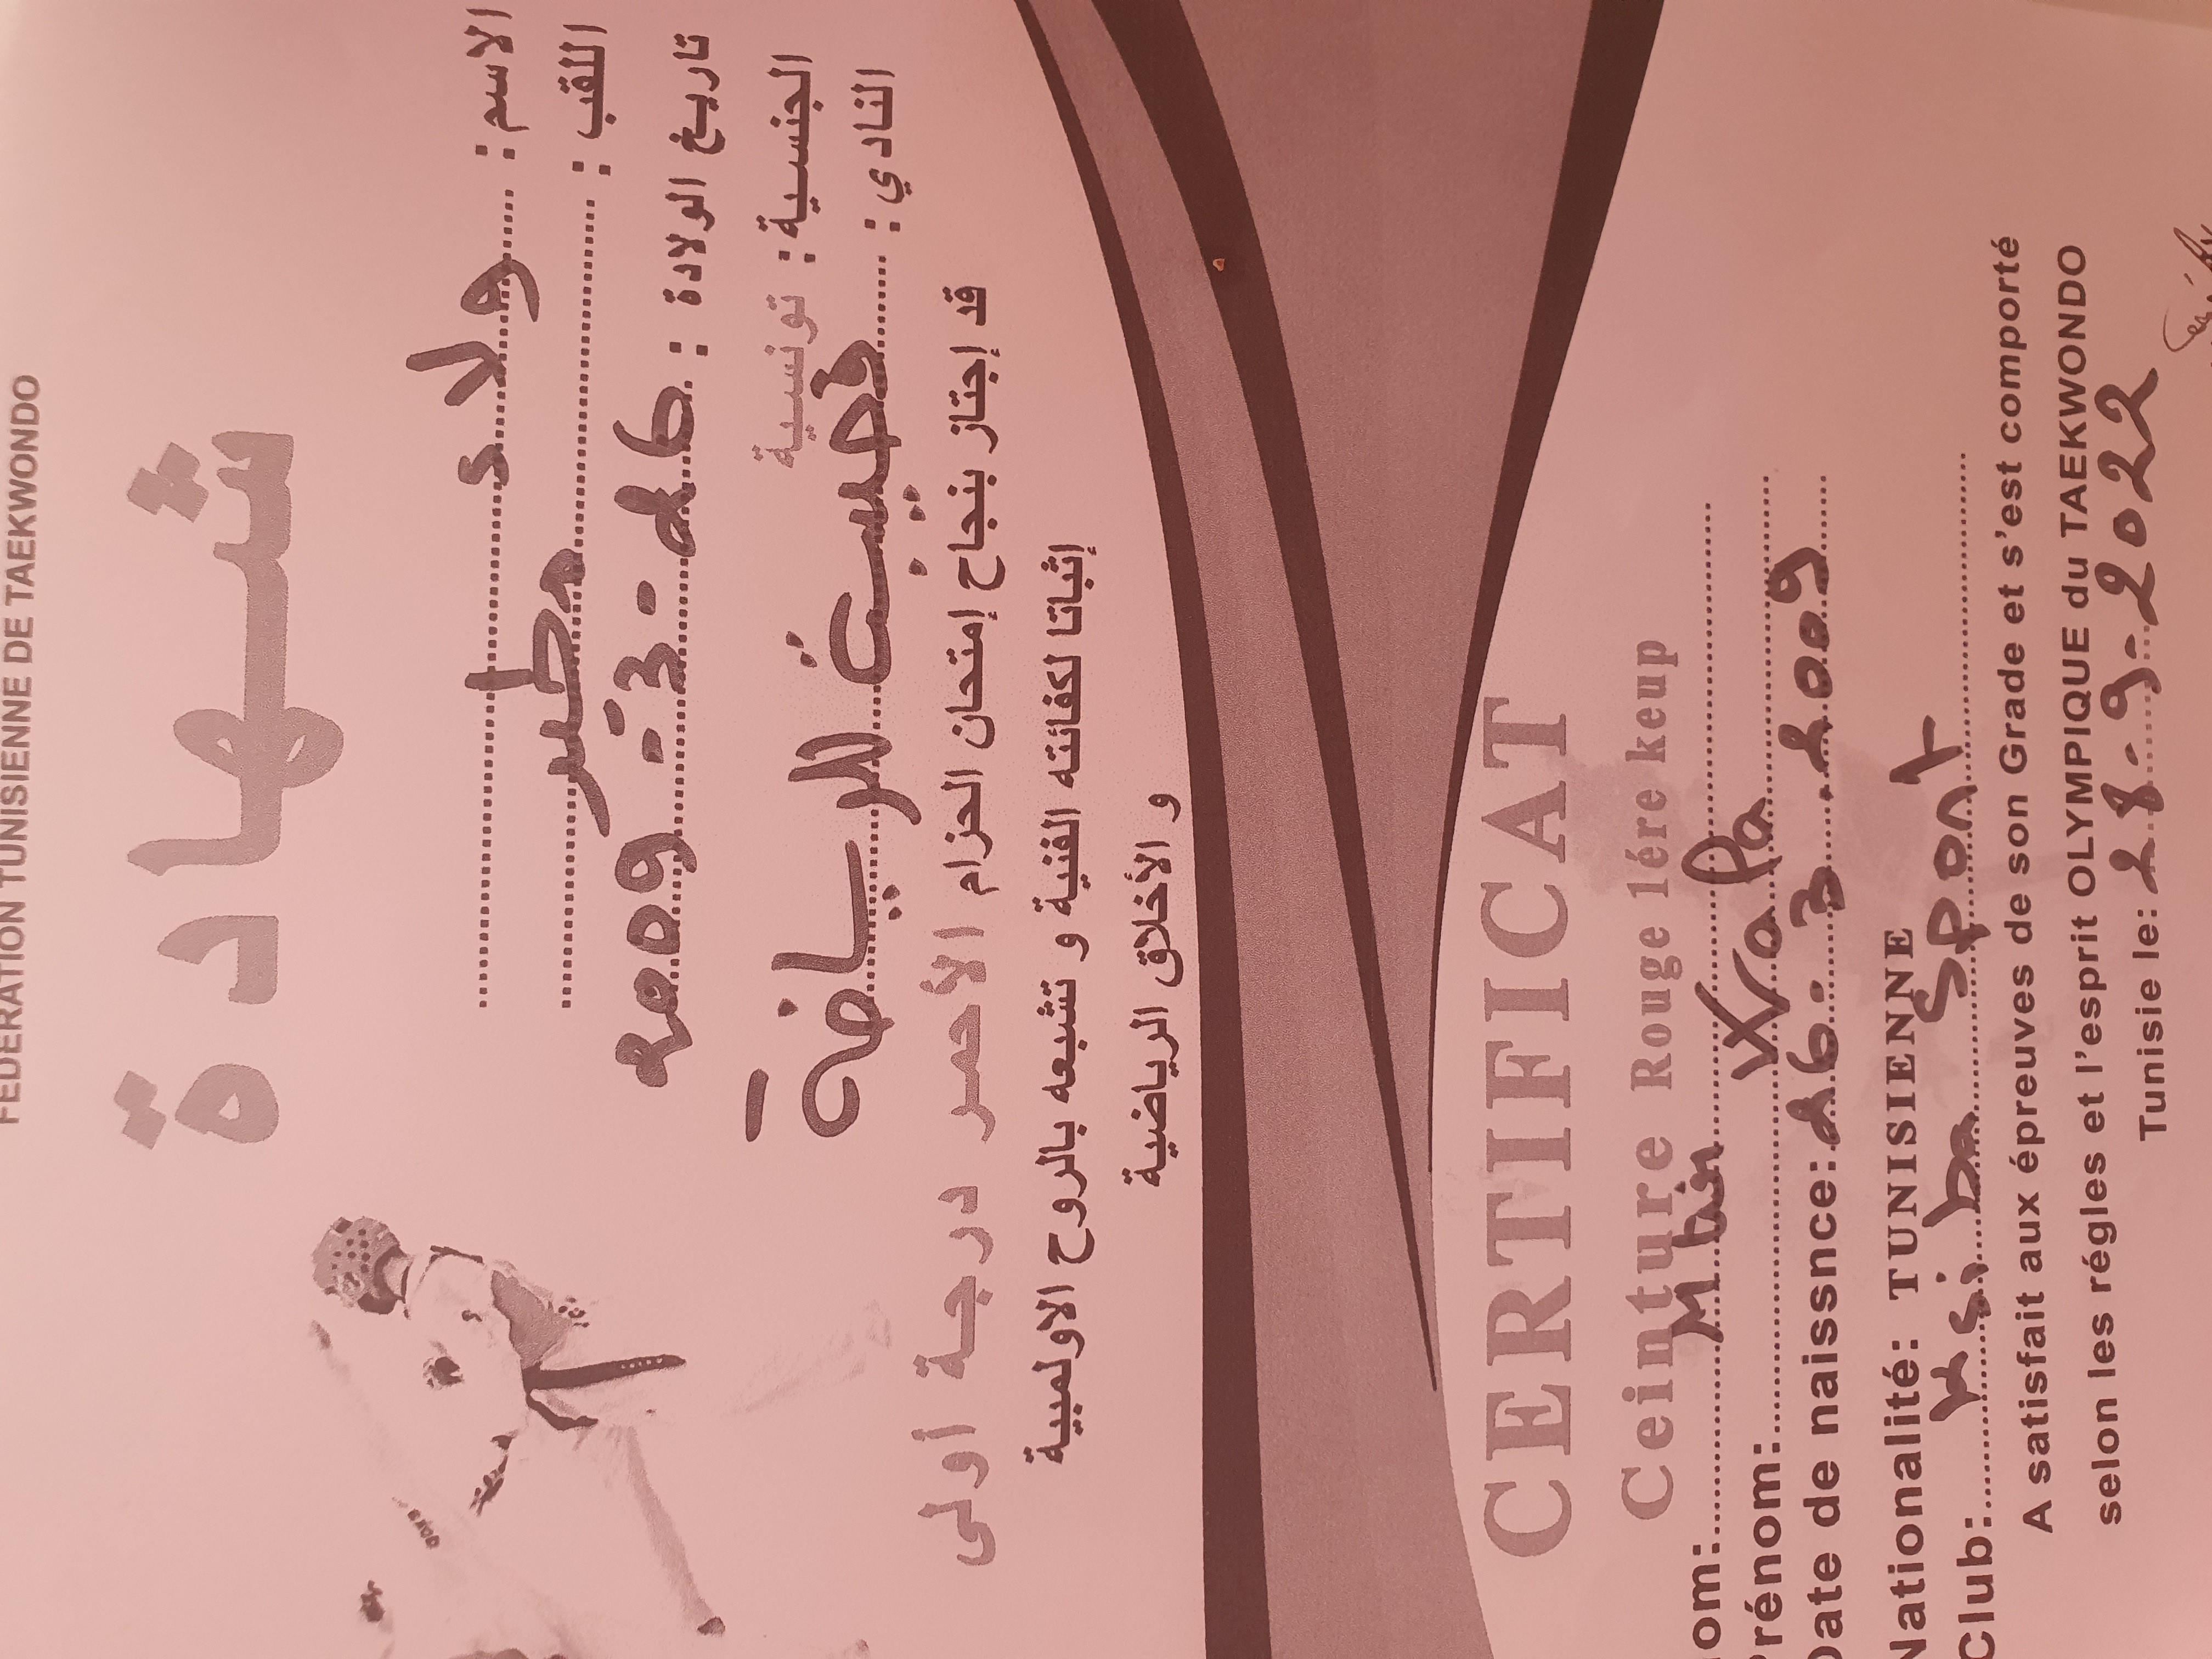 FEDERATION TUNISIENNE DE TAEKWONDO
شهادة
الاسم : ولاء
اللقب : مطير
تاريخ الولادة : 16 - 3 - 2009
الجنسية : تونسية
النادي : قصيبة الرياضة
قد إجتاز بنجاح إمتحان الحزام الأحمر درجة أولى
إثباتا لكفائته الفنية و تشبعه بالروح الاولمبية
و الأخلاق الرياضية
CERTIFICAT
Ceinture Rouge 1ére keup
om:
rénom: Wala
Date de naissnce: 16. 3. 2009
Nationalité: TUNISIENNE
Club: Ksiba Sport
A satisfait aux épreuves de son Grade et s'est comporté
selon les régles et l'esprit OLYMPIQUE du TAEKWONDO
Tunisie le: 28-9-2022